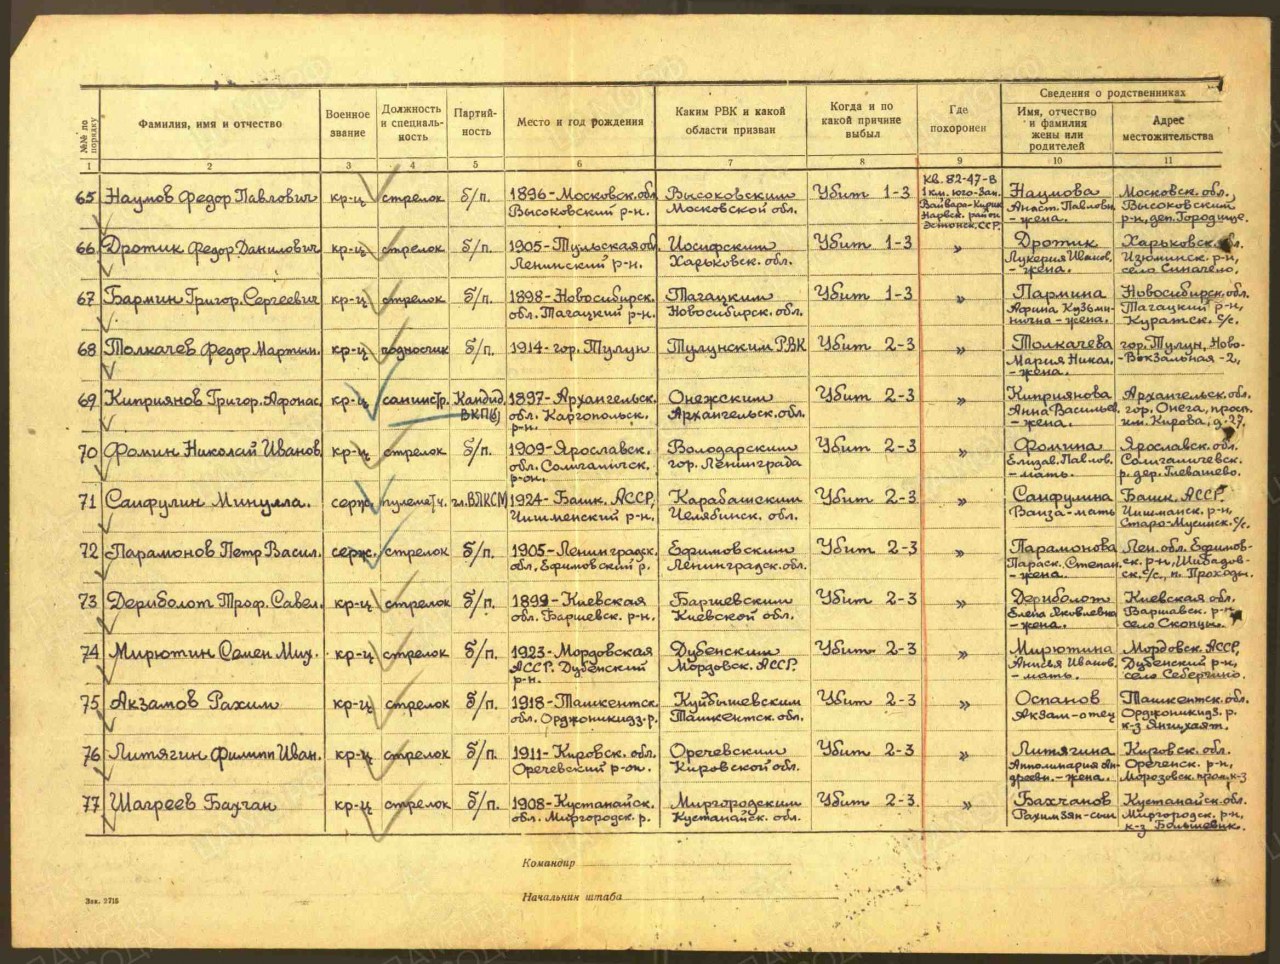 Сведения о родственниках
№№ по порядку
Фамилия, имя и отчество
Военное звание
Должность и специаль-ность
Партий-ность
Место и год рождения
Каким РВК и какой области призван
Когда и по какой причине выбыл
Где похоронен
Имя, отчество и фамилия жены или родителей
Адрес местожительства
1 2 3 4 5 6 7 8 9 10 11
65 Наумов Федор Павлович кр-ц стрелок б/п. 1896-Московск.обл Высоковский р-н. Высоковским Московской обл. Убит 1-3 Кв. 82-47-В 1 км. юго-зап. Вайвара-Кирик Нарвск. район Эстонск. ССР. Наумова Анаст. Павловн. -жена. Московск. обл. Высоковский р-н, деп. Городище.
66 Дротик Федор Данилович кр-ц стрелок б/п. 1905-Тульская обл Ленинский р-н. Иосифским Харьковск. обл. Убит 1-3 » Дротик Лукерия Иванов. -жена. Харьковск. обл. Изюминск. р-н, село
67 Бармин Григор. Сергеевич кр-ц стрелок б/п. 1898-Новосибирск. обл. Тагацкий р-н. Тагацким Новосибирск. обл. Убит 1-3 » Пармина Афина Кузьми-нична-жена. Новосибирск. обл. Тагацкий р-н, Куратск. с/с.
68 Толкачев Федор Мартын. кр-ц подносчик б/п. 1914-гор. Тулун Тулунским РВК Убит 2-3 » Толкачева Мария Никал. -жена. гор. Тулун, Ново--Вокзальная-2,
69 Киприянов Григор. Афонас. кр-ц санинстр. Кандид. ВКП(б) 1897-Архангельск. обл. Каргопольск. р-н. Онежским Архангельск. обл. Убит 2-3 » Киприянова Анна Васильев. -жена. Архангельск. обл. гор. Онега, просп. им. Кирова, д-27.
70 Фомин Николай Иванов. кр-ц стрелок б/п. 1909-Ярославск. обл. Солигаличск. р-он. Володарским гор. Ленинграда Убит 2-3 » Фомина Елизав. Павлов. -мать. Ярославск. обл. Солигаличевск. р. дер. Глевашево.
71 Саифулин Минулла. серж. пулеметч. чл. ВЛКСМ 1924-Башк. АССР, Чишменский р-н, Карабашским Челябинск. обл. Убит 2-3 » Саифулина Ванза-мать Башк. АССР, Чишманск. р-н, Старо-Мусинск. с/с.
72 Парамонов Петр Васил. серж. стрелок б/п. 1905-Ленинградск. обл. Ефимовский р. Ефимовским Ленинградск. обл. Убит 2-3 » Парамонова Параск. Степан. -жена. Лен. обл. Ефимов-ск. р-н, Шибадов-ск. с/с, п. Проходы.
73 Дериболот Троф. Савел. кр-ц стрелок б/п. 1899-Киевская обл. Баршевск. р-н. Баршевским Киевской обл. Убит 2-3 » Дериболот Елена Яковлевна -жена. Киевская обл. Варшавск. р-н село Скопцы.
74 Мирютин Семен Мих. кр-ц стрелок б/п. 1923-Мордовская АССР. Дубенский р-н. Дубенским Мордовск. АССР. Убит 2-3 » Мирютина Анисья Иванов. -мать. Мордовск. АССР, Дубенский р-н, село
75 Акзамов Рахим кр-ц стрелок б/п. 1918-Ташкентск. обл. Орджоникидз. р. Куйбышевским Ташкентск. обл. Убит 2-3 » Оспанов Акзам-отец Ташкентск. обл. Орджоникидз. р. к-з Янгихаят.
76 Литягин Филипп Иван. кр-ц стрелок б/п. 1911-Кировск. обл. Оречевский р-он. Оречевским Кировской обл. Убит 2-3 » Литягина Апполинария Ан-дреевн.-жена. Кировск. обл. Ореченск. р-н, Морозовск. к-з
77 Шагреев Бахчан кр-ц стрелок б/п. 1908-Кустанайск. обл. Миргородск. р. Миргородским Кустанайск. обл. Убит 2-3. » Бахчанов Рахимзян-сын Кустанайск. обл. Миргородск. р-н, к-з Большевик.
Командир
Начальник штаба
Зак. 2715